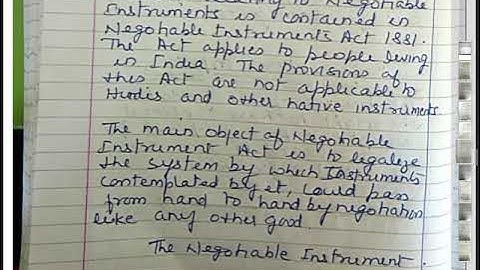 to Negotiable
Instruments is contained in
Negotiable Instruments Act 1881.
The Act applies to people living
in India. The provisions of
this Act are not applicable to
Hundis and other native instruments
The main object of Negotiable
Instrument Act is to legalize
the system by which Instruments
contemplated by it, could pass
from hand to hand by negotiation
like any other good.
The Negotiable Instrument.